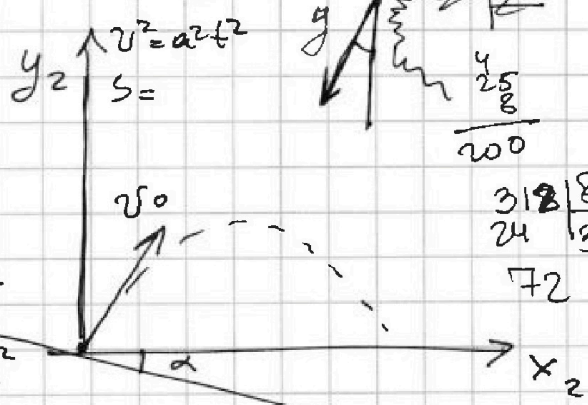 y₂
v² = a²t²
S =
g
4
25
8
200
v₀
318|8
24
72
α
x₂